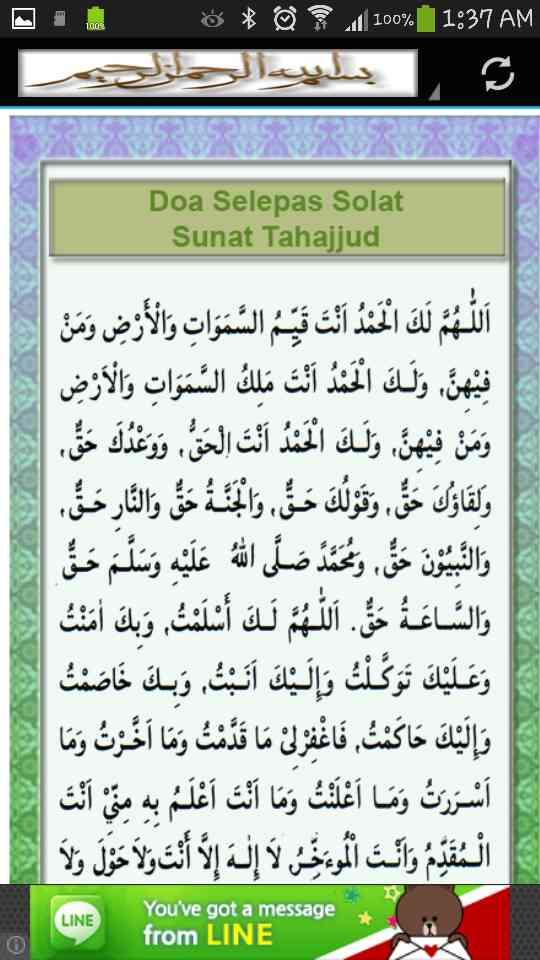 100%
100%
1:37 AM
بسم الله الرحمن الرحيم
Doa Selepas Solat
Sunat Tahajjud
اَللّٰهُمَّ لَكَ الْحَمْدُ اَنْتَ قَيِّمُ السَّمَوَاتِ وَالْأَرْضِ وَمَنْ
فِيْهِنَّ, وَلَكَ الْحَمْدُ اَنْتَ مَلِكُ السَّمَوَاتِ وَالْاَرْضِ
وَمَنْ فِيْهِنَّ, وَلَكَ الْحَمْدُ اَنْتَ الْحَقُّ, وَوَعْدُكَ حَقٌّ,
وَلِقَاؤُكَ حَقٌّ, وَقَوْلُكَ حَقٌّ, وَالْجَنَّةُ حَقٌّ وَالنَّارِ حَقٌّ,
وَالنَّبِيُّوْنَ حَقٌّ, وَمُحَمَّدً صَلَّى اللهُ عَلَيْهِ وَسَلَّمَ حَقٌّ
وَالسَّاعَةُ حَقٌّ. اَللّٰهُمَّ لَكَ أَسْلَمْتُ, وَبِكَ اٰمَنْتُ
وَعَلَيْكَ تَوَكَّلْتُ وَإِلَيْكَ اَنَبْتُ, وَبِكَ خَاصَمْتُ
وَإِلَيْكَ حَاكَمْتُ, فَاغْفِرْلِىْ مَا قَدَّمْتُ وَمَا اَخَّرْتُ وَمَا
اَسْرَرَتُ وَمَا اَعْلَنْتُ وَمَا اَنْتَ اَعْلَمُ بِهِ مِنِّيْ اَنْتَ
الْمُقَدِّمُ وَاَنْتَ الْمُوءَخِّرُ لَا إِلٰهَ إِلَّا أَنْتَ وَلَا حَوْلَ وَلَا
LINE
You've got a message
from LINE